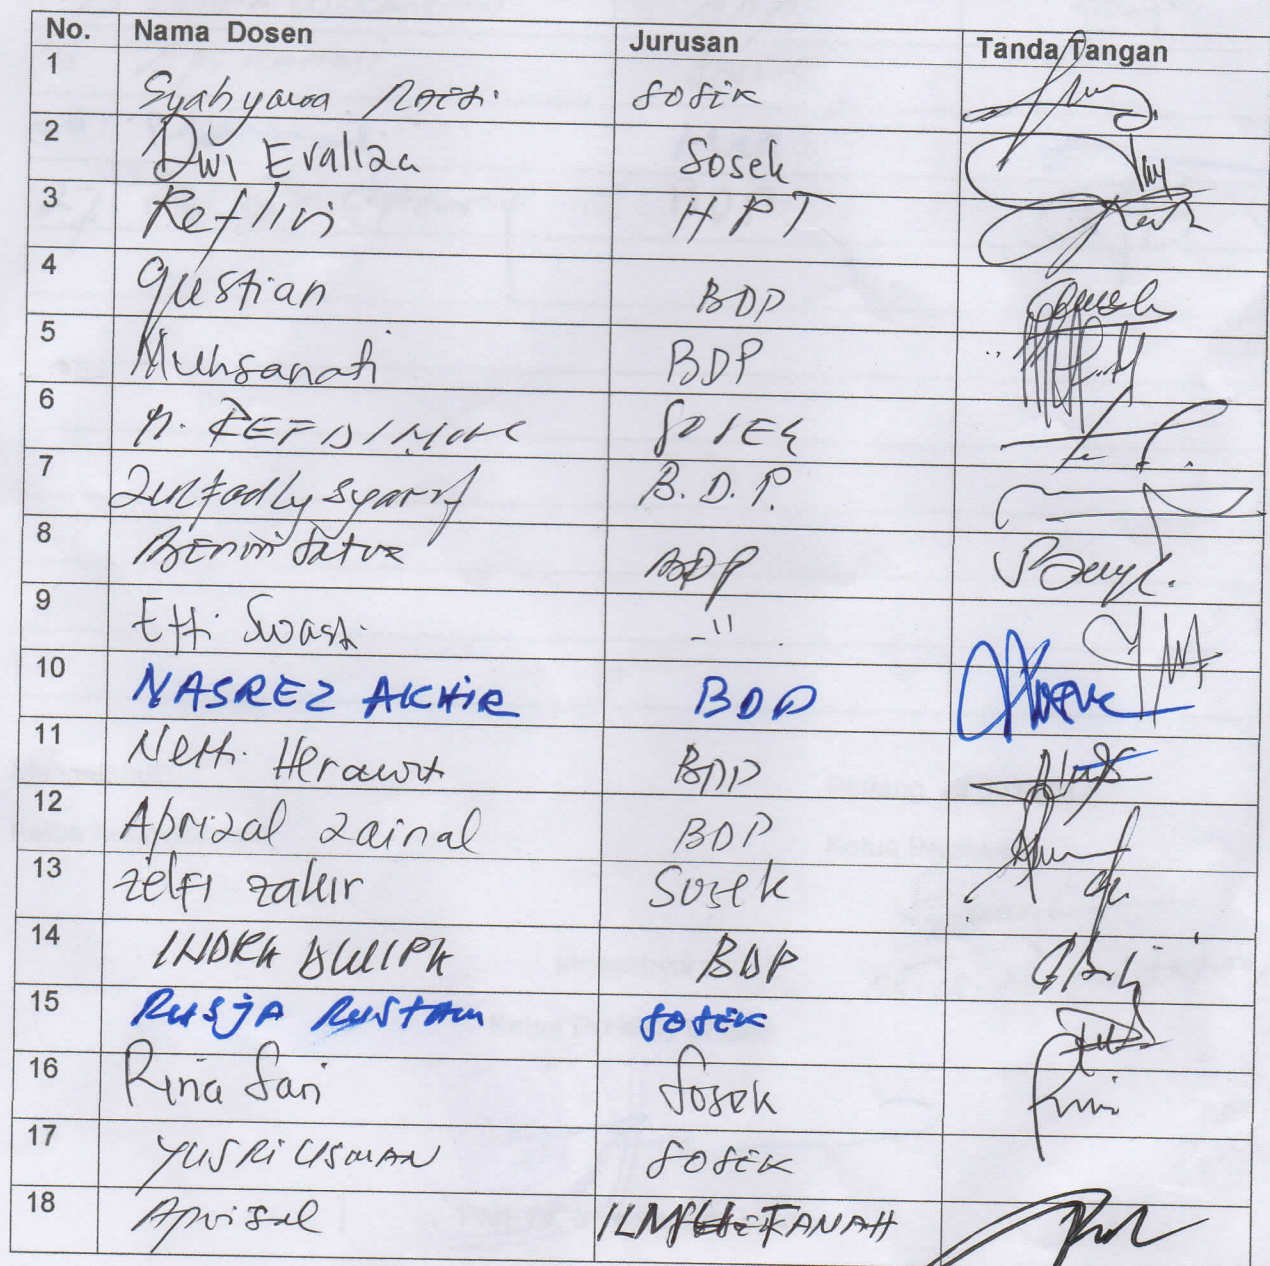 No. Nama Dosen Jurusan Tanda Tangan
1 Syahyana Raesi. SOSEK
2 Dwi Evaliza Sosek
3 Reflin HPT
4 Gustian BDP
5 Muhsanati BDP
6 M. REFDINAL SOSEK
7 Zulfadly Syarif B.D.P.
8 BENNI Satria BDP
9 Etti Swasti -"
10 NASREZ AKHIR BDP
11 Netti Herawati BDP
12 Aprizal Zainal BDP
13 zelfi zakir Sosek
14 INDRA DWIPA BDP
15 RUSJA RUSTAM SOSEK
16 Rina Sari Sosek
17 YUSRI USMAN SOSEK
18 Aprisal ILMU TANAH